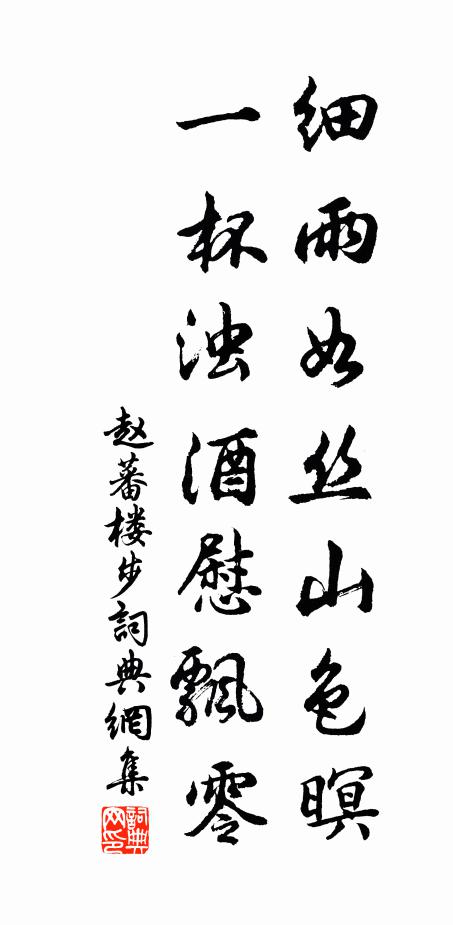 细雨如丝山色暝
一杯浊酒慰飘零
赵蕃楼步詞典網集
詞典网印